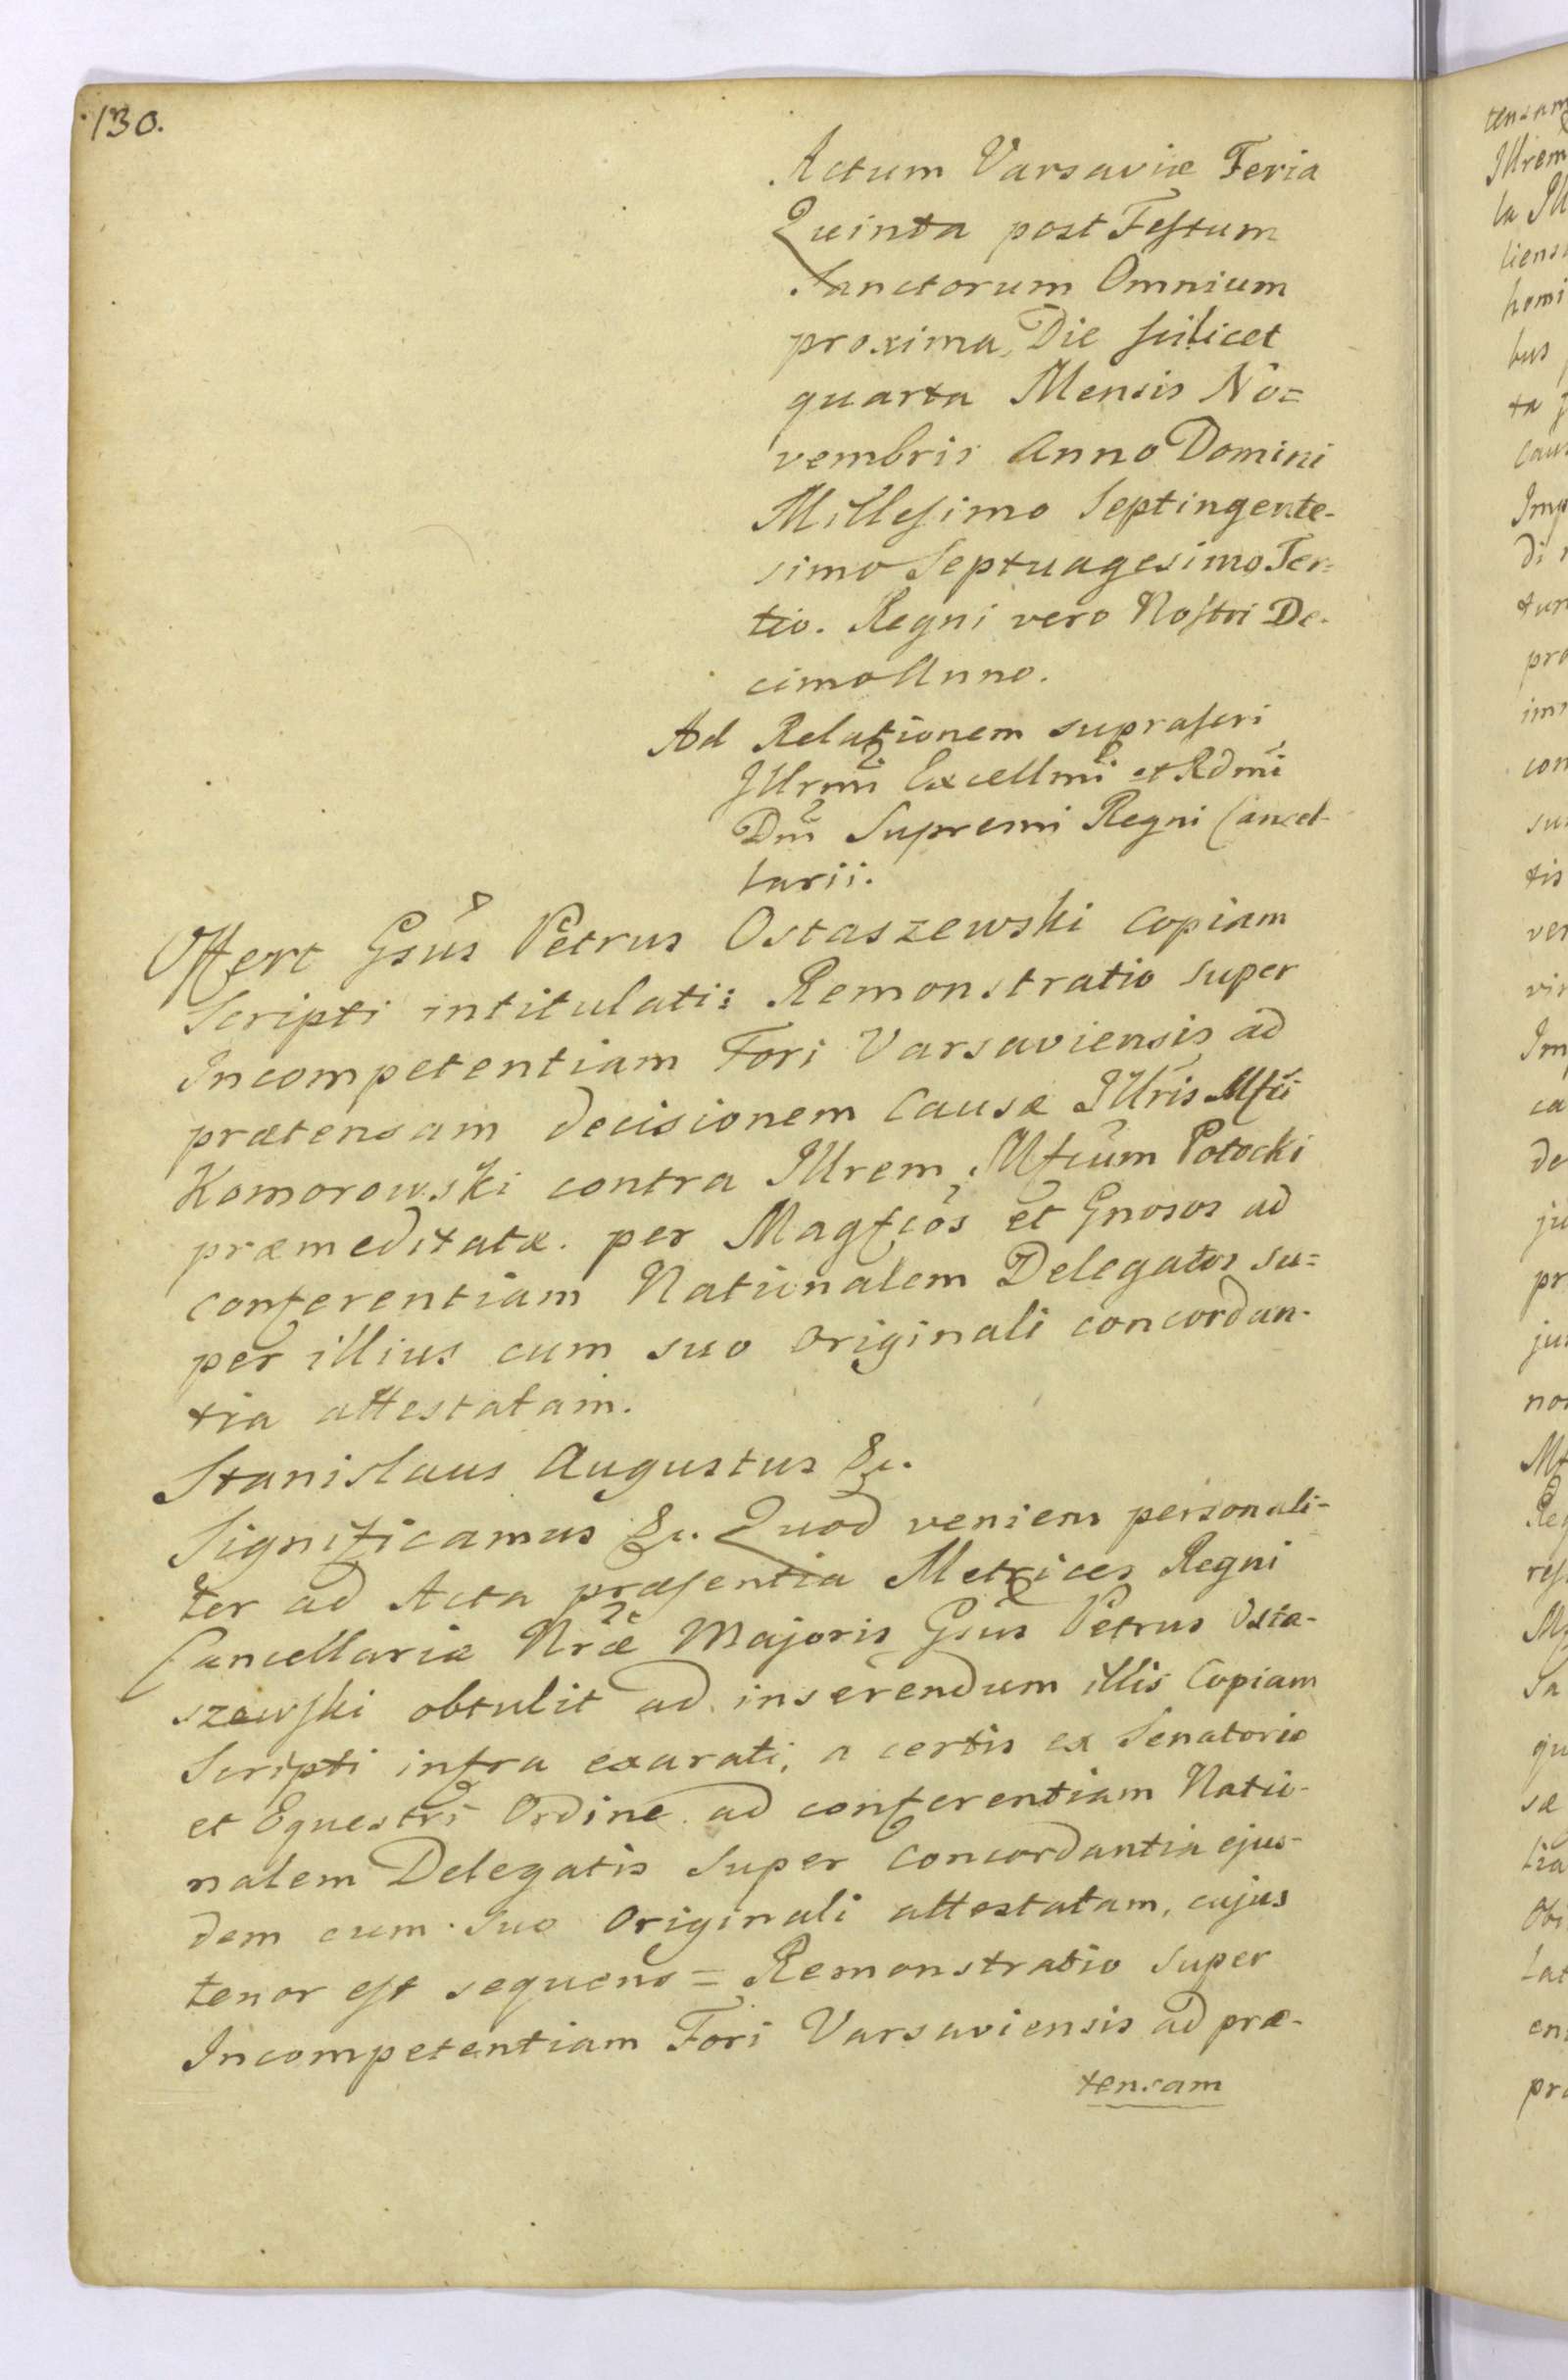 130.
Actum Varsaviæ Feria
Quinta post Festum
Sanctorum Omnium
proxima, Die scilicet
quarta Mensis No=
vembris Anno Domini
Millesimo Septingente-
simo Septuagesimo Ter=
tio. Regni vero Nostri De-
cimo Anno.
Ad Relationem suprascri
Illrmi Excellmi et Rdmi
Dni Supremi Regni Cancel-
larii.
Offert Gsus Petrus Ostaszewski Copiam
Scripti intitulati: Remonstratio super
Incompetentiam Fori Varsaviensis ad
prætensam decisionem Causæ Illris Mfci
Komorowski contra Illrem Mfcum Potocki
præmeditatæ. per Magfcos et Gnosos ad
conferentiam Nationalem Delegatos su=
per illius cum suo Originali concordan-
tia attestatam.
Stanislaus Augustus &c.
Significamus &c. Quod veniens personali-
ter ad Acta præsentia Metrices Regni
Cancellariæ Nræ Majoris Gsus Petrus Osta-
szewski obtulit ad inserendum illis Copiam
Scripti infra exarati, a certis ex Senatorio
et Equestri Ordine ad conferentiam Natio-
nalem Delegatis super Concordantia ejus-
dem cum suo Originali attestatam, cujus
tenor est sequens = Remonstratio super
Incompetentiam Fori Varsaviensis ad præ-
tensam